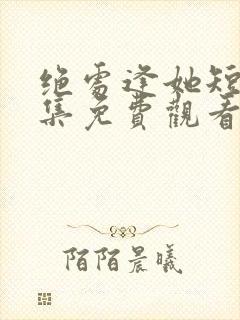 绝处逢她短
集免費觀看
陌陌晨曦